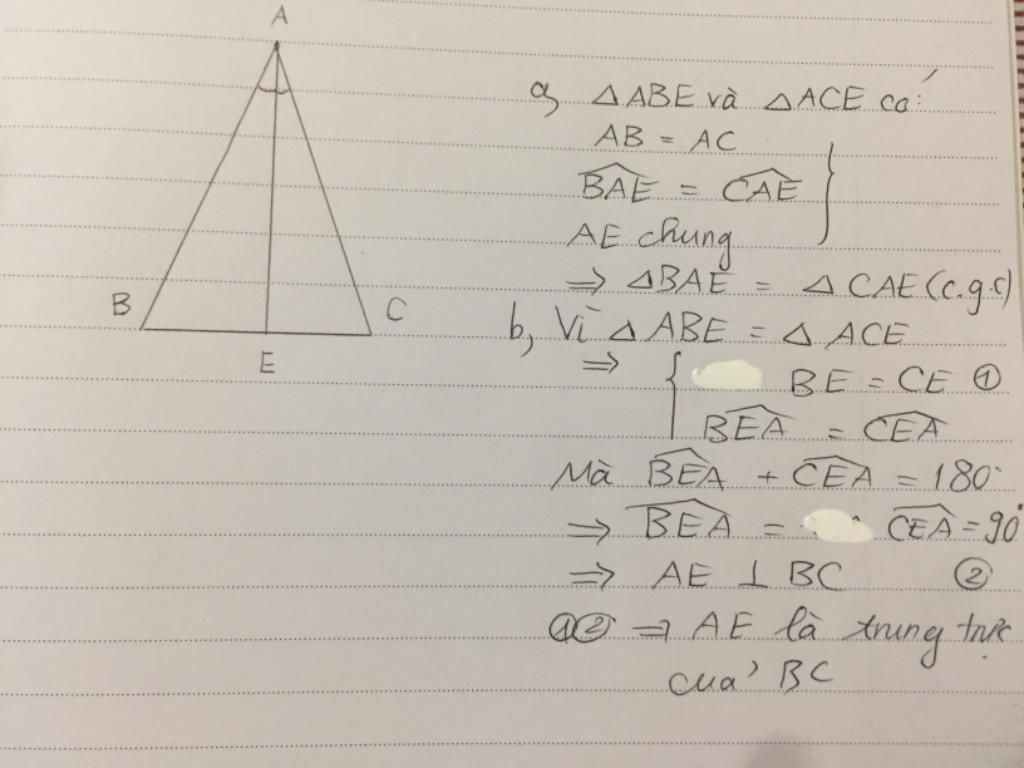 A
B
C
E
a, △ABE và △ACE có:
AB = AC
BAE^ = CAE^
AE chung
⇒ △BAE = △CAE (c.g.c)
b, Vì △ABE = △ACE
⇒ { BE = CE ①
BEA^ = CEA^
Mà BEA^ + CEA^ = 180°
⇒ BEA^ = CEA^ = 90°
⇒ AE ⊥ BC ②
①② ⇒ AE là trung trực
của BC